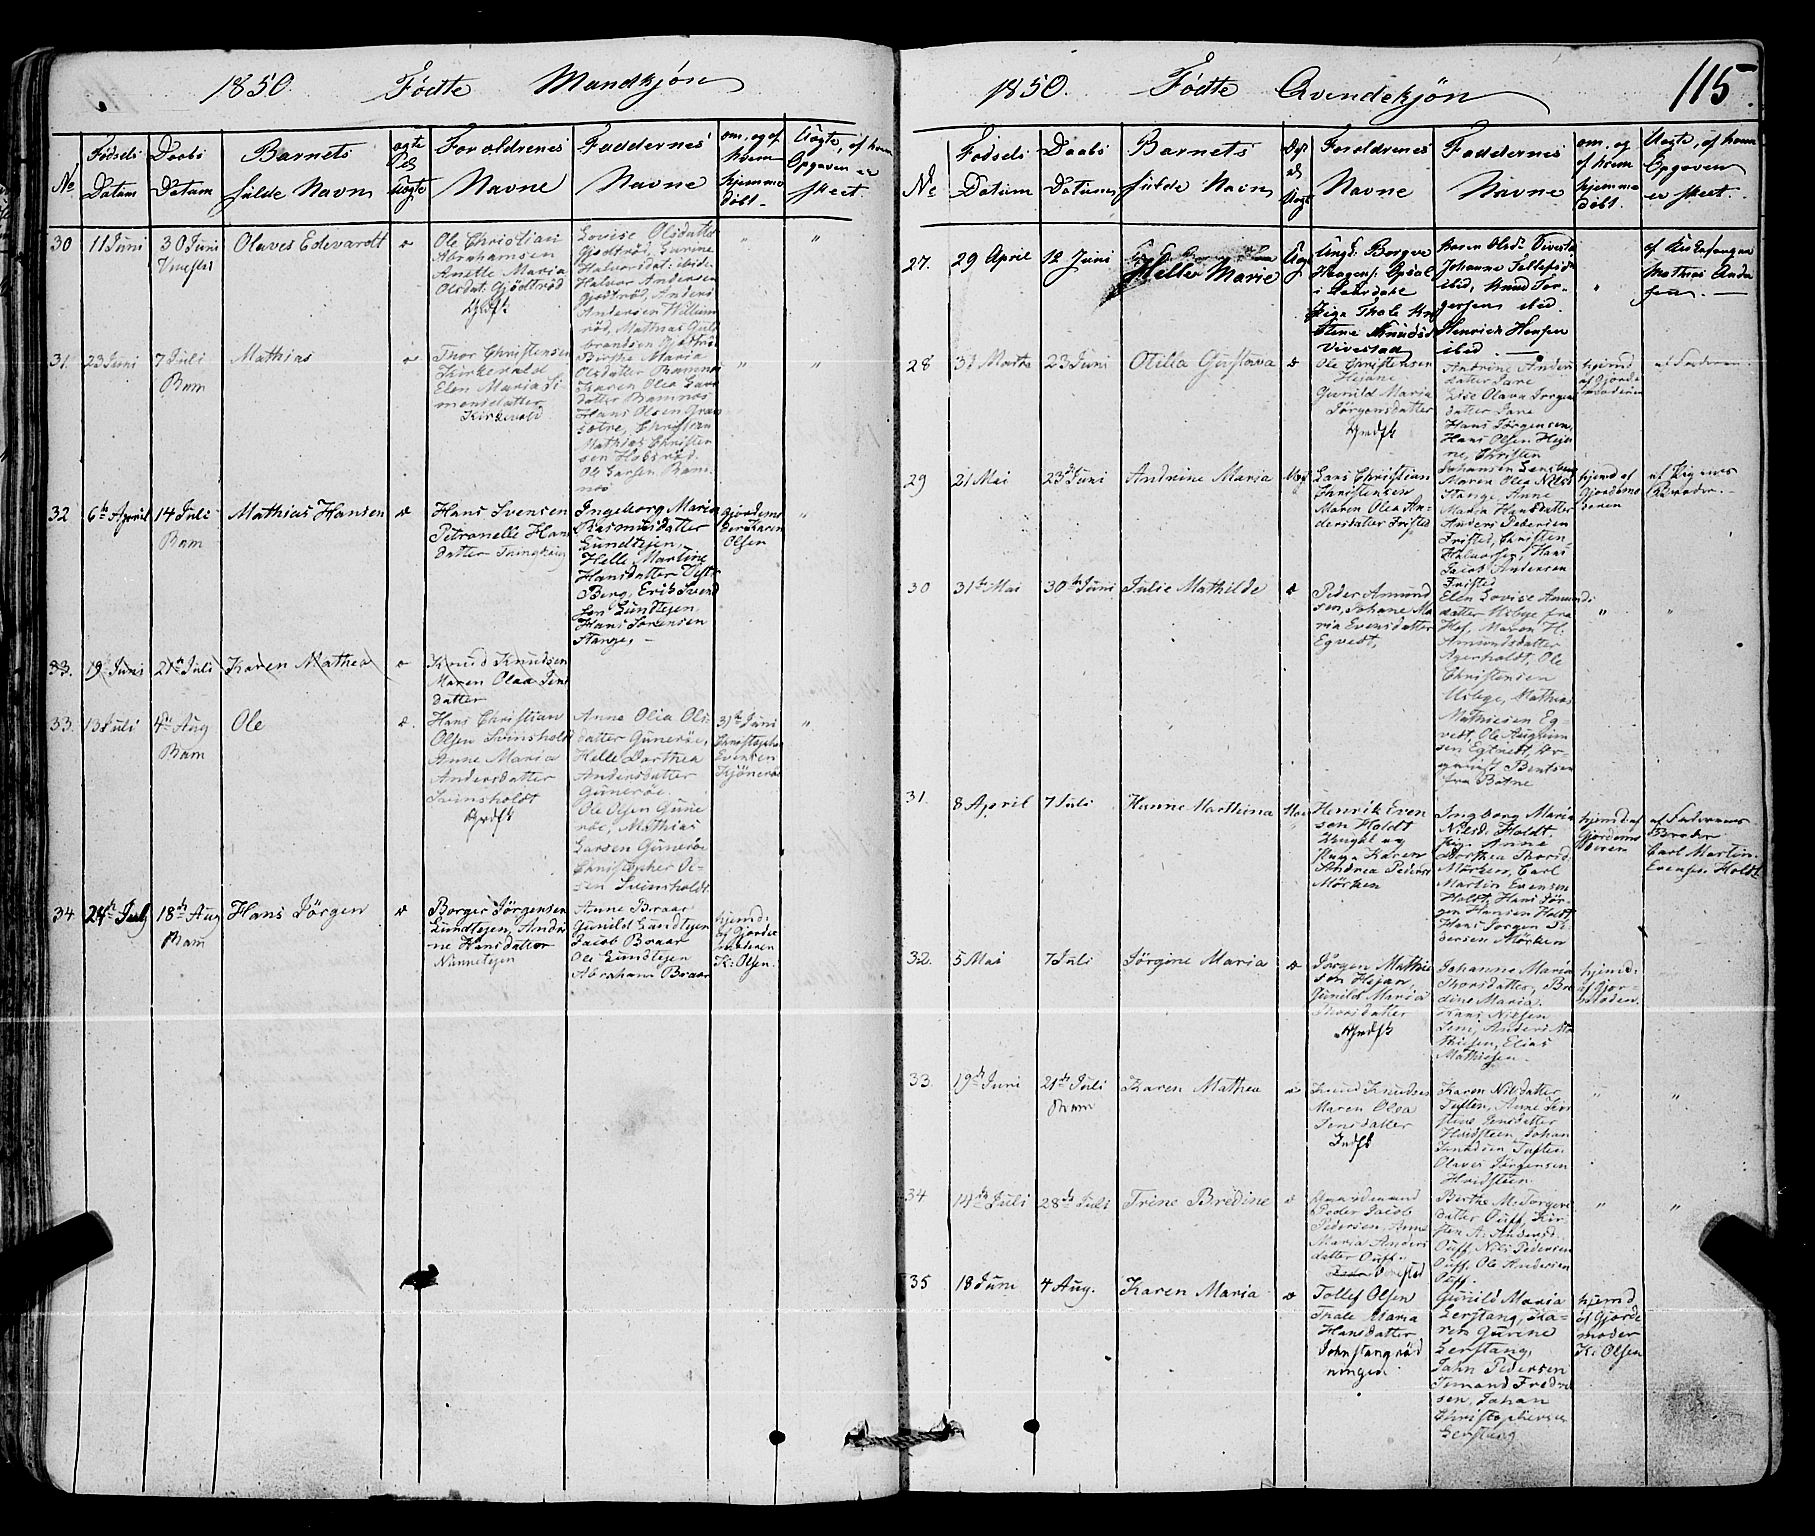 1850. Fødte Mandkjøn
No
Fødsels Datum
Daabs Datum
Barnets fulde Navn
ægte el. Uægte
Forældrenes Navne
Faddernes Navne
om, og af hvem hjemmedøbt.
Uægte, af hvem Opgaven er skeet.
30
11 Juni
30 Juni
Olaves Edevardt
æ
Ole Christian
Abrahamsen
Anette Maria
Olsdat. Gjödtröd
Lovise Olsdatter
Gjödtröd, Gurine
Halvorsdat: ibid:
Halvor Andersen
Gjødtrød, Anders
Andersen Hillum
röd, Mathias Gul
brandsen Gjøtrö
"
"
31.
23 Juni
7 Juli
Ram
Mathias
æ
Thor Christensen
Kirkevold
Elen Maria Si
monsdatter
Kirkevold
Birthe Maria
Olsdatter Ramnæs
Karen Olea Lars
datter Ramnæs
Hans Olsen Gran
sotne, Christian
Mathias Christen
sen Hobsröd.
Ole Larsen Ram-
næs
"
"
32
6te April
14 Juli
Ram
Mathias Hansen
æ
Hans Svensen
Petronelle Hans
datter
Ingeborg Maria
Rasmusdatter
Lundtejen,
Helle Martine
Hansdatter Vest
Berg, Erik Svend
sen Lundtejen,
Hans Sørensen
Stange, -
Gjordemo
der Karen
Olsen
"
33.
19 Juni
21de Juli
Karen Mathea
æ
Knud Knudsen
Maren Olea Jens
datter
33.
13 Juli
4de Aug
Ram
Ole
æ.
Hans Christian
Olsen Svinsholdt
Anne Maria
Andersdatter
Svinsholdt
Anne Olia Ols
datter Gunerøe,
Helle Dorthea
Andersdatter
Gunerøe.
Ole Olsen Gune
röe, Mathias
Larsen Gunerøe
Christopher Ol-
sen Svinsholdt
31te Juni
Christopher
Evensen
Kjönerøe
"
34
24de July
18de Aug
Ram
Hans Jörgen
æ
Borger Jörgensen
Lundtejen, Andri
ne Hansdatter
Nannetejen
Anne Braar
Gunild Lundtejen
Jacob Braar
Ole Lundtejen
Abraham Braar
hjemd:
af Gjorde
moderen
K: Olsen.
1850. Fødte Qvindekjön 115.
No
Fødsels Datum
Daabs Datum
Barnets fulde Navn
Ægt el. Uægt
Forældrenes Navne
Faddernes Navne
om, og af hvem hjemmedöbt.
Uægte, af hvem Opgaven er skeet.
27.
29 April
12 Juni
Helle Marie
Uægt
Ungk. Borgve
Haagens: Opsal
i Laurdale
Pige Thale Kri
stene Knudsd
Vivestad
Maren Olsd: Vivestad
Johanne Tollefsd:
ibid, Knud Tor-
gersen ibid
Henrich Hansen
ibid
"
af Barnefaderen
Mathias Ander
sen. -
28
31 Marts
23 Juni
Otilia Gustava
æ
Ole Christensen
Hejane
Gunild Maria
Jörgensdatter
Andrine Anders
datter Jare
Lise Olava Jorgens
datter Jare
Hans Jørgensen,
Hans Olsen Heja
ne, Christen
Johansen
hjemd
af Gjorde
moderen
af Faderen
29
21 Mai
23de Juni
Andrine Maria
Uægt
Lars Christian
Christensen
Maren Olea An-
dersdatter Fristed
Maren Olea Nilsd
Stange, Anne
Maria Hansdatter
Anders Pedersen
Fristed, Christen
Halvorsen, Hans
Jacob Andersen
Fristed
hjemd af
Gjordemo
deren
af Pigens
Broder. -
30
31te Mai
30de Juni
Julie Mathilde
æ
Peder Amund
sen, Johane Ma
ria Evensdatter
Egvedt,
Elen Lovise Amunds
datter Usbye fra
Hof, Maren H.
Amundsdatter
Agerholdt, Ole
Christensen
Usbye, Mathias
Mathiesen Eg-
vedt, Ole
sen Egtvedt,
Bentsen
fra Botne
"
"
31.
8 April
7 Juli
Hanne Marthina
Uæg
Henrik Even
sen Holdt
Ungkl og
Pige Karen
Andrea Peders
Mörken
Ingborg Maria
Nilsd: Holdt.
pig. Anne
Dorthea Thorsd:
Mörken, Carl
Martin Evensen
Holdt, Hans Jör-
gen Hansen Holdt
Hans Jorgen Pe
dersen Mörken
hjemd: af
Gjordemo
deren
af Faderens
Broder
Carl Martin
Evensen Holdt
32.
5 Mai
7 Juli
Jörgine Maria
æ
Jörgen Mathie
sen Hejan,
Gunild Maria
Thorsdatter
Johanne Maria
Thorsdatter, Bre
dine Maria.
Hans Nilsen
Jem, Anders Ma
thiesen, Elias
Mathiesen -
hjemd:
af Gjor-
moderen
33.
19de Juni
21de Juli
Ram
Karen Mathea
æ
Knud Knudsen
Maren Olea
Jensdatter
Karen Nilsdatter
Tuften, Anne Kir
stine Jensdatter
Hvidsteen, Johan
Knudsen Tuften
Olaves Jörgensen
Hvidsteen.
"
"
34
14de Juli
28de Juli
Trine Bredine
æ
Gaardmand
Peder Jacob
Pedersen, Anne
Maria Anders
datter Ouff.
Berthe M. Torgers
datter, Ouff, Kir-
sten A. Andersd.
Ouff, Nils Pedersen
Ouff, Ole Andersen
Ouff.
"
"
35
18 Juni
4 Aug.
Karen Maria
æ
Tollef Olsen
Thale Maria
Hansdatter,
Johnstangröd
ningen
Gunild Maria
Gerstang, Ka-
ren Gurine
Gerstang,
John Pedersen
Temand Fredri
sen, Johan
Christophersen
Gerstang
hjemd
af Gjorde
moder
K: Olsen